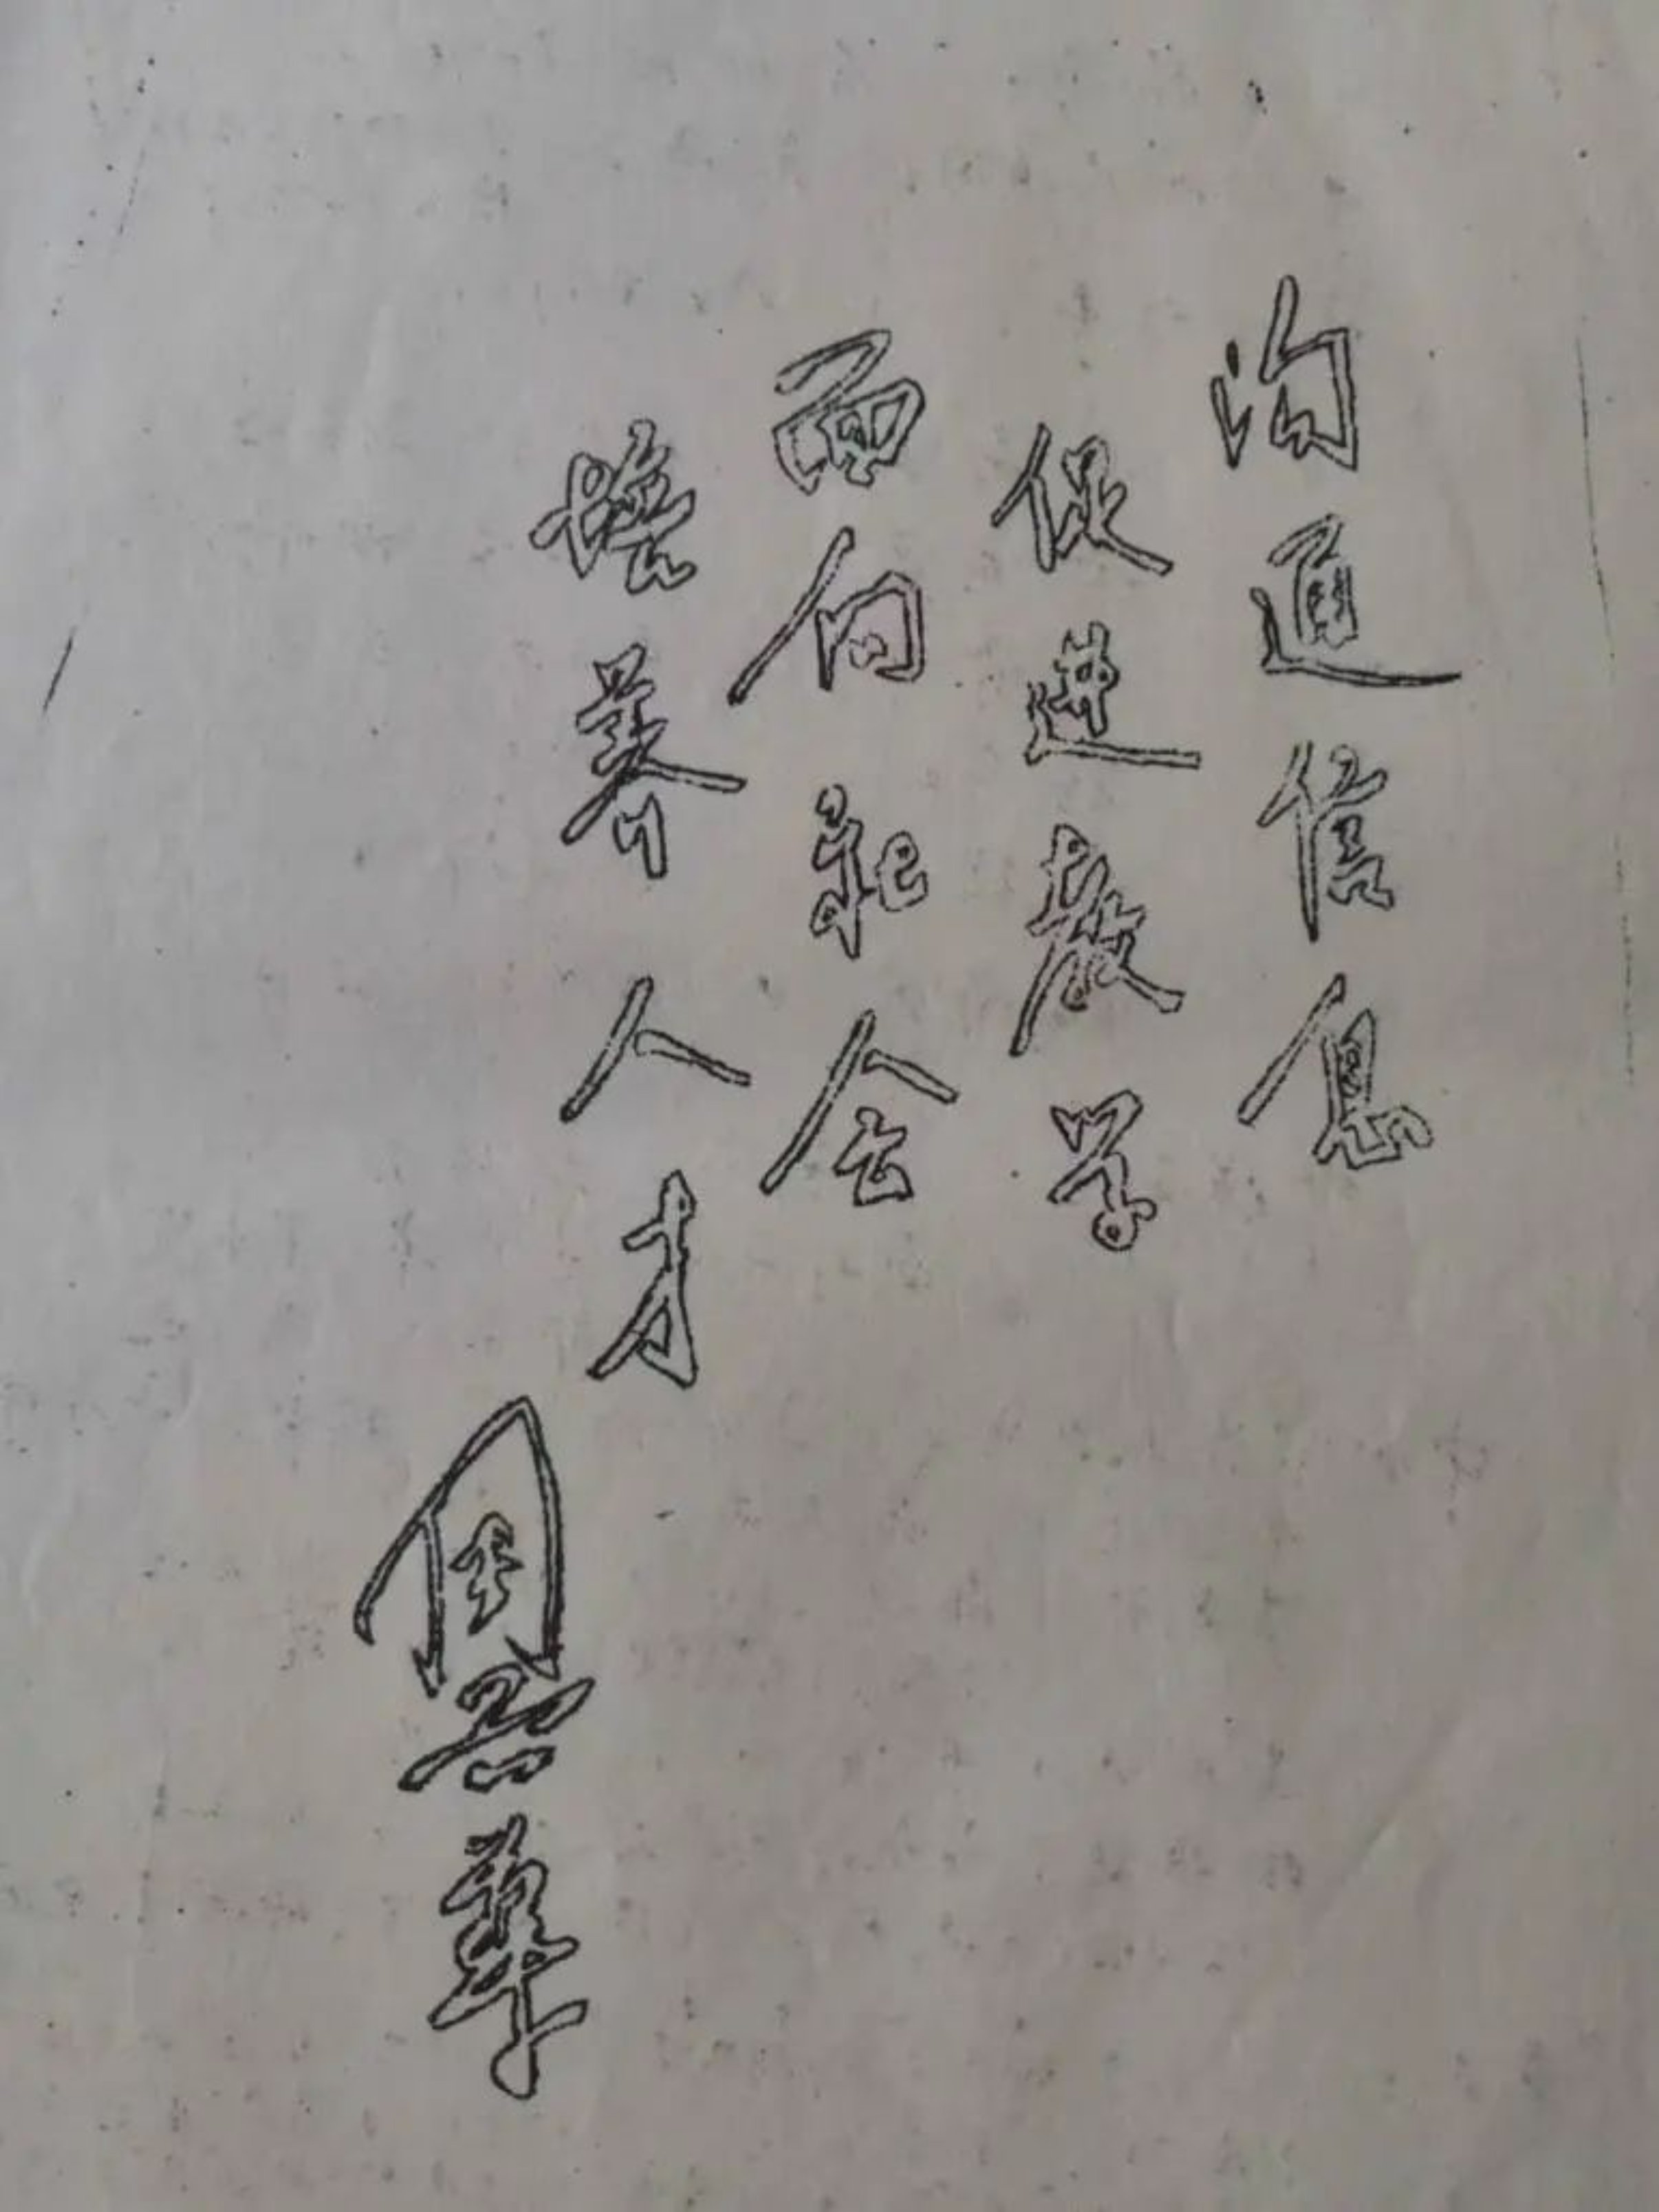 沟通信息
促进教学
面向社会
培养人才